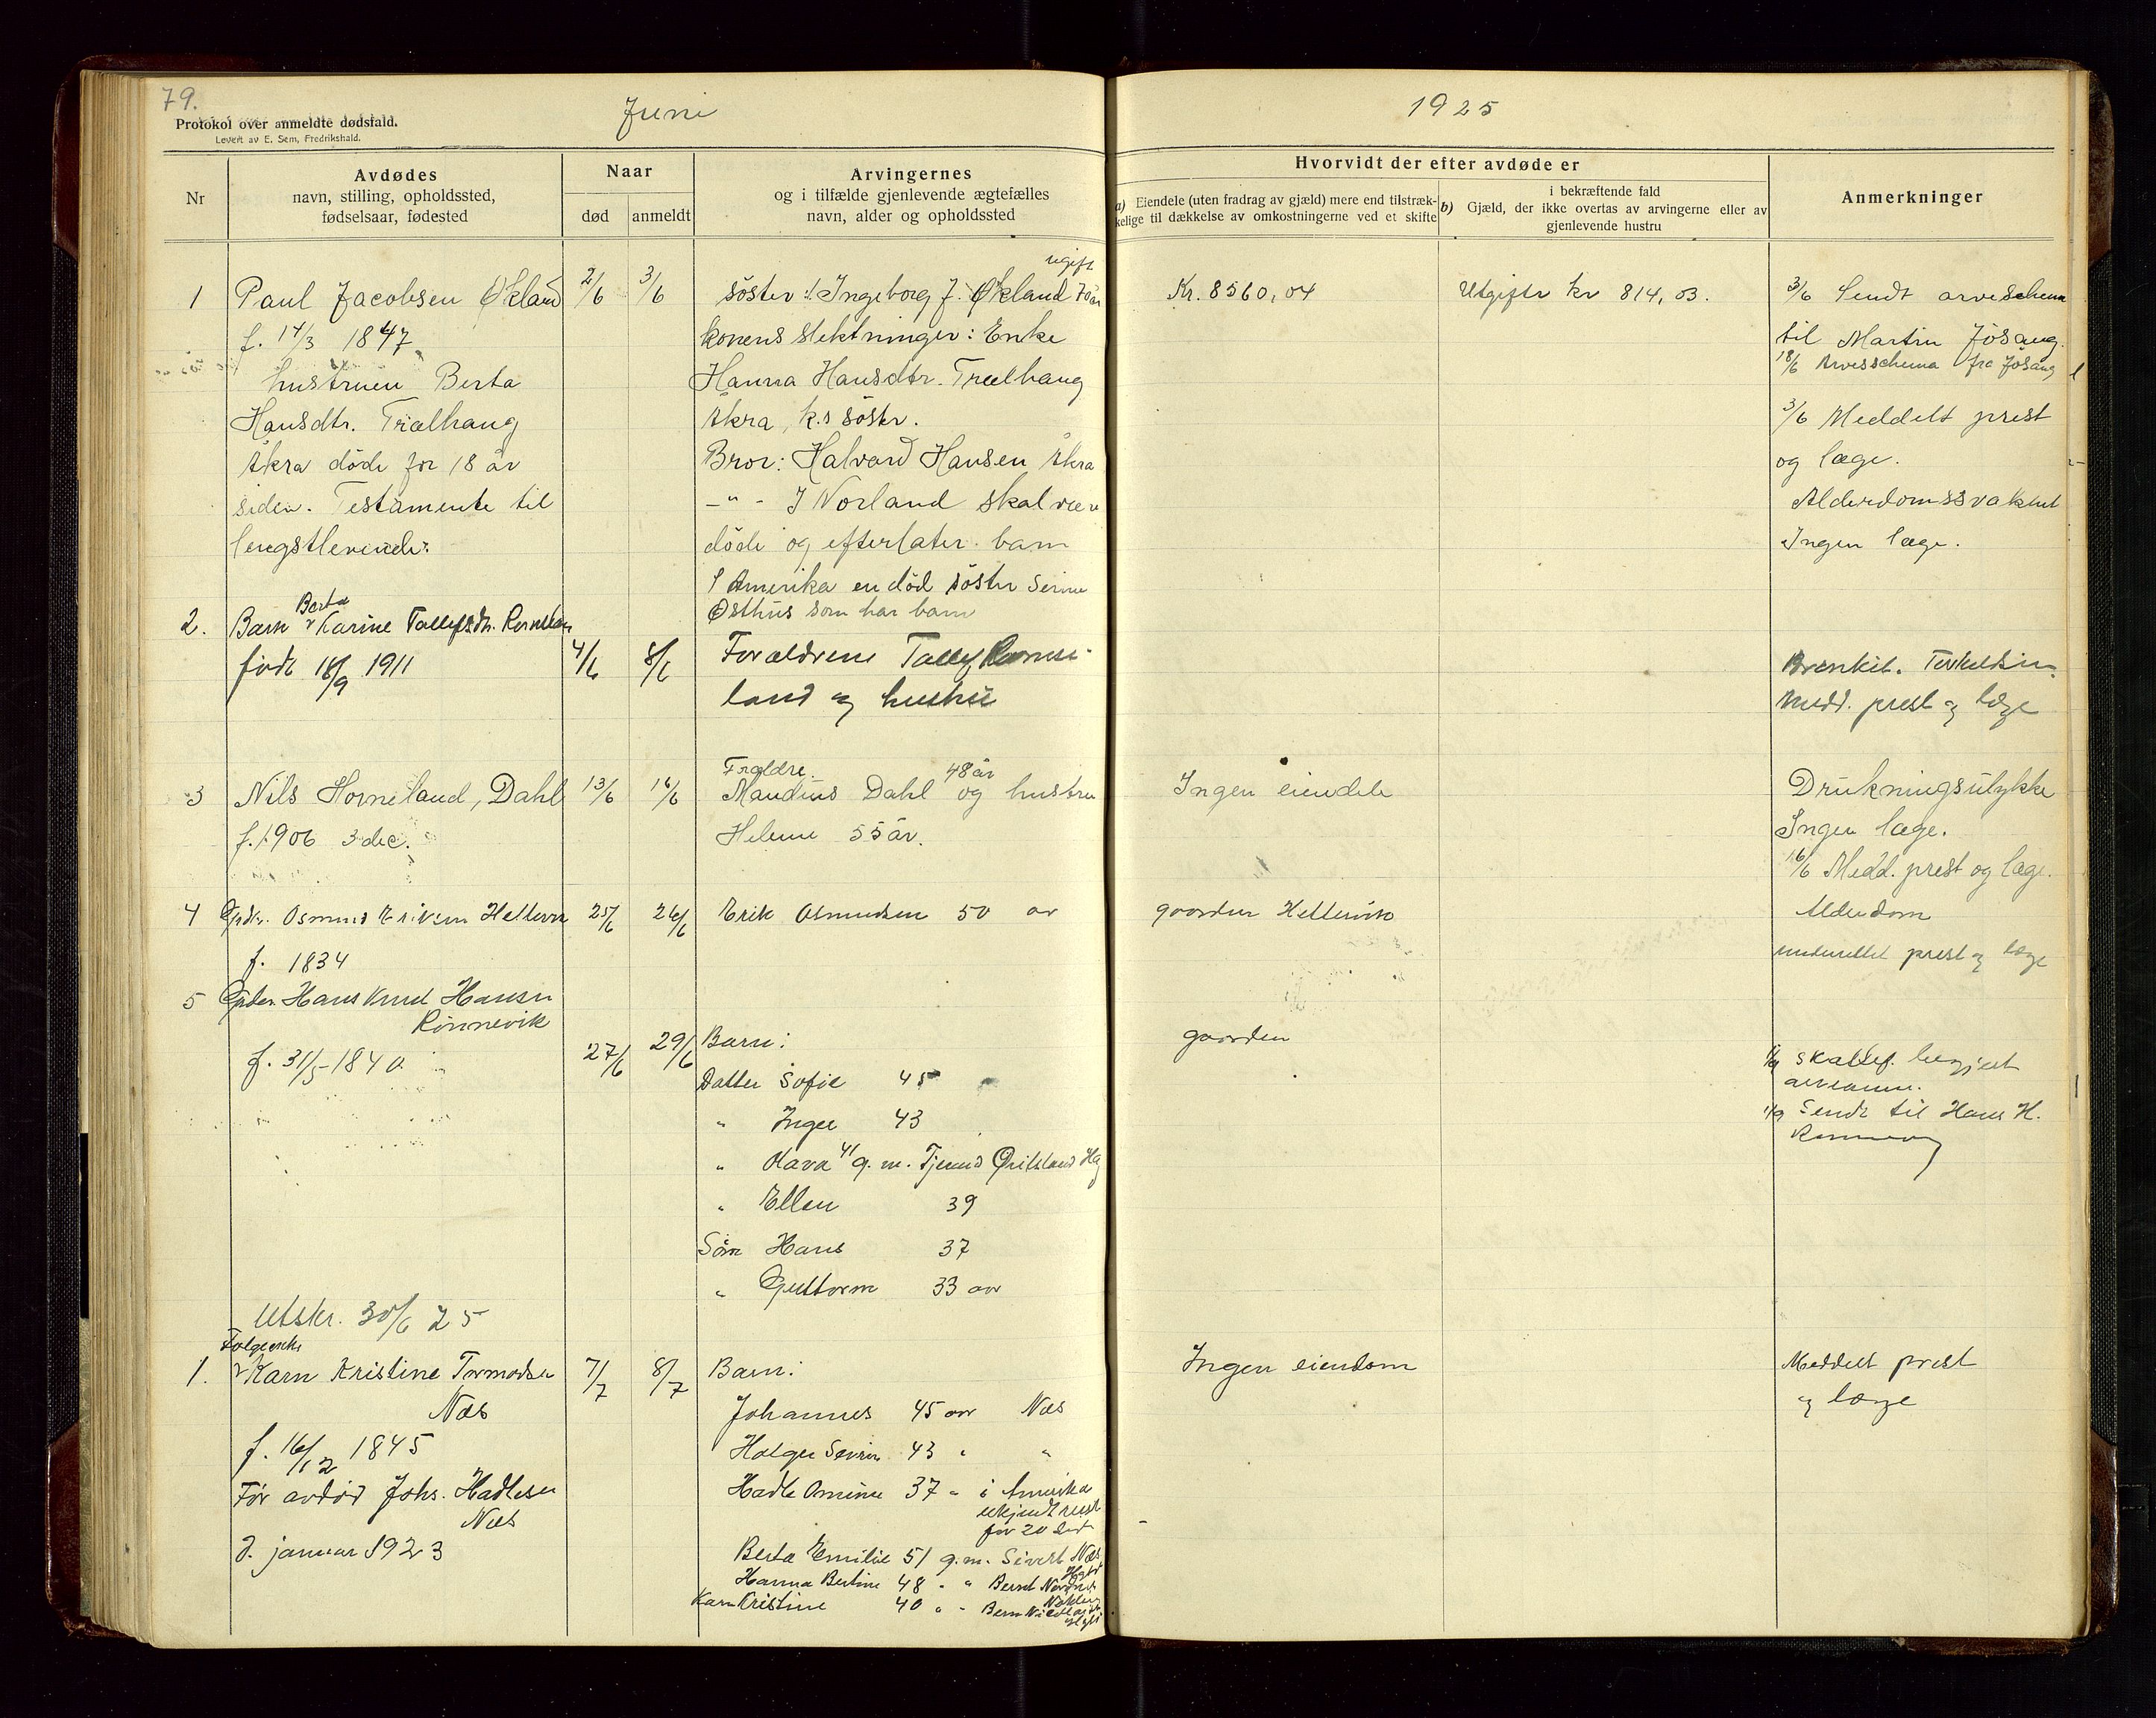 79.
Juni
1925
Protokol over anmeldte dødsfald.
Levert av E. Sem, Fredrikshald.
Nr
Avdødes
navn, stilling, opholdssted,
fødselsaar, fødested
Naar
død
anmeldt
Arvingernes
og i tilfælde gjenlevende ægtefælles
navn, alder og opholdssted
Hvorvidt der efter avdøde er
a) Eiendele (uten fradrag av gjæld) mere end tilstræk-
kelige til dækkelse av omkostningerne ved et skifte
i bekræftende fald
b) Gjæld, der ikke overtas av arvingerne eller av
gjenlevende hustru
Anmerkninger
1
Paul Jacobsen Økland
f. 14/3 1847
hustruen Berta
Hansdtr. Trælhaug
Åkra døde for 18 år
siden. Testamente til
lengstlevende.
2/6
3/6
ugift
söster :. Ingeborg J. Økland 70 år
konens slektninger: Enke
Hanna Hansdtr. Trælhaug
Åkra, k.s söster.
Bror: Halvard Hansen Åkra
-"- I Norland skal være
döde og efterlater barn
I Amerika en död söster Serine
Østhus som har barn
Kr. 8560,04
Utgifter kr 814,03.
3/6 Sendt arveschema
til Martin Jösang.
18/6 Arveschema fra Jösang
3/6 Meddelt prest
og læge.
Alderdomssvakhet
Ingen læge.
2.
Berta
Barn Karine Tollefsdtr.
födt 18/9 1911
4/6
8/6
Forældrene Tollef
land og hustru
Bronkit. Torkeldsen.
Medd. prest og læge
3
Nils Horneland, Dahl
f. 1906 3 dec.
13/6
16/6
Foreldre. 48 år
Maudius Dahl og hustru
Helene 55 år.
Ingen eiendele
Drukningsulykke
Ingen læge.
16/6 Medd. prest og læge.
4
Grdbr. Osmund Eriksen Hettervik
f. 1834
25/6
26/6
Erik Osmundsen 50 aar
gaarden Hettervik
Alderdom
underrettet prest og læge
5
Hans Knud Hansen
Rönnevik
f. 31/5 1840
27/6
29/6
Barn:
Datter Sofie 45
" Inger 43
" Olava 41 g. m. Gritsland
" Ellen 39
Sön Hans 37
" Guttorm 33 aar
gaarden
skattef. begjært
1/9 Sendt til Hans H.
Utskr. 30/6 25
1.
Karn Kristine Tormodsen
Næs
f. 16/12 1845
Før avdød Johs. Hadlesen
Næs
d. januar 1923
7/7
8/7
Barn:
Johannes 45 aar Næs
Holger Severin 43 " "
Hadle Omine 37 " i Amerika
ukjendt
for 20
Berta Emilie 51 g. m. Sivert Næs
Hanna Bertine 48 " " Bernt
Karn Kristine 40 " "
Ingen eiendom
Meddelt prest
og læge